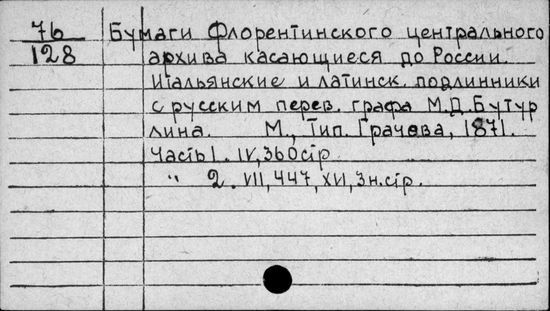 76
128
Бумаги Флорентинского центрального
архива касающиеся до России.
Итальянские и латинск. подлинники
с русским перев. графа М.Д. Бутур
лина. М., Тип. Грачева, 1871.
Часть 1. IV, 360 стр.
" 2. VII, 447, XVI, 3 н. стр.